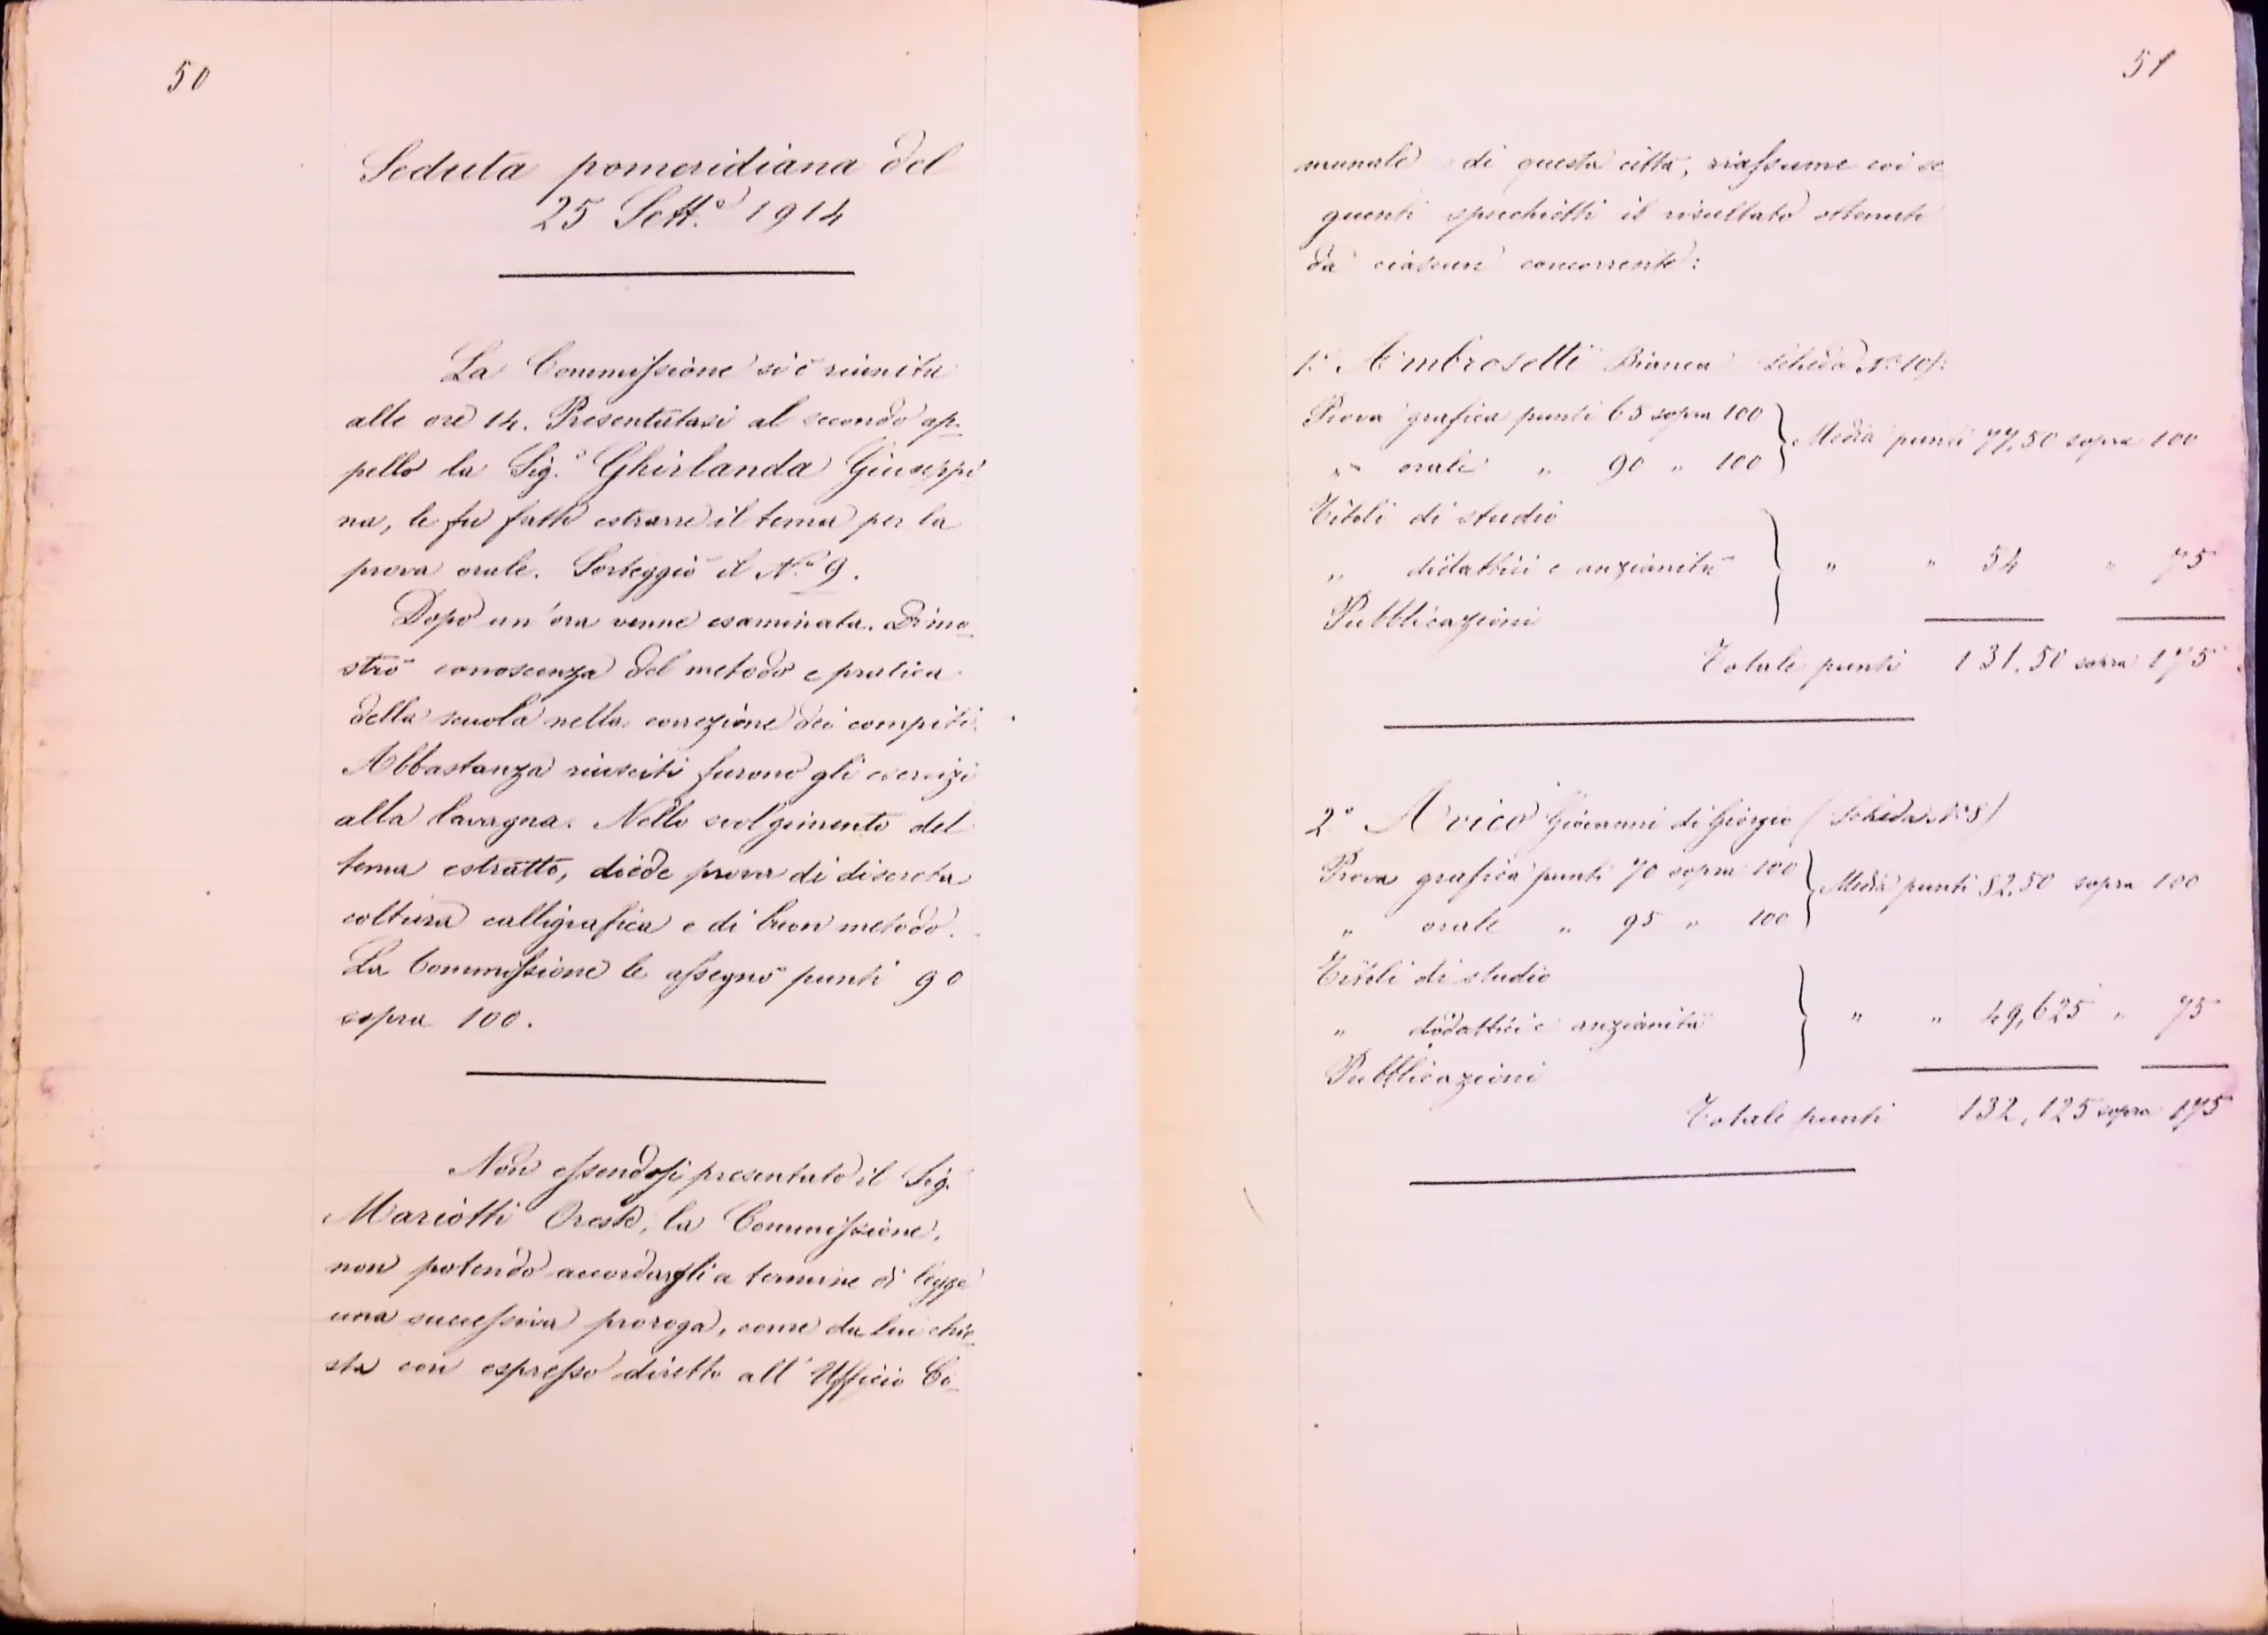 50
Seduta pomeridiana del
25 Sett.e 1914
La Commissione si è riunita
alle ore 14. Presentatasi al secondo ap-
pello la Sig.a Ghirlanda Giuseppi
na, le fu fatto estrarre il tema per la
prova orale. Sorteggiò il N.o 9.
Dopo un'ora venne esaminata. Dimo-
strò conoscenza del metodo e pratica
della scuola nella correzione dei compiti.
Abbastanza riusciti furono gli esercizi
alla lavagna. Nello svolgimento del
tema estratto, diede prova di discreta
coltura calligrafica e di buon metodo.
La Commissione le assegnò punti 90
sopra 100.
Non essendosi presentato il Sig.
Mariotti Oreste, la Commissione,
non potendo accordargli a termine di legge
una successiva proroga, come da lui chie-
sta con espresso diretto all'Ufficio Co-
51
munale di questa città, riassume coi se
guenti specchietti il risultato ottenuto
da ciascun concorrente:
1.o Ambrosetti Bianca Scheda N.o 10
Prova grafica punti 65 sopra 100 } Media punti 77,50 sopra 100
" orale " 90 " 100
Titoli di studio
" didattici e anzianità } " " 54 " 75
Pubblicazioni
Totale punti 131.50 sopra 175
2.o Avico Giovanni di Giorgio (Scheda N.o 8)
Prova grafica punti 70 sopra 100 } Media punti 82.50 sopra 100
" orale " 95 " 100
Titoli di studio
" didattici e anzianità } " " 49,625 " 75
Pubblicazioni
Totale punti 132,125 sopra 175